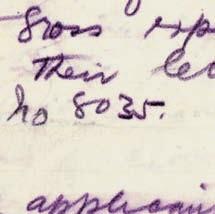 gross exp
their let
no 8035.
applicain